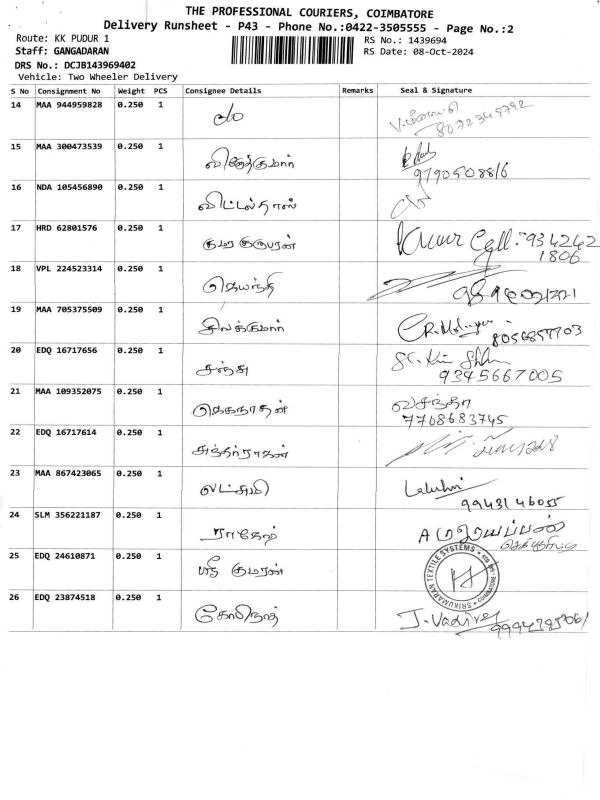 THE PROFESSIONAL COURIERS, COIMBATORE
Delivery Runsheet - P43 - Phone No.:0422-3505555 - Page No.:2
Route: KK PUDUR 1
RS No.: 1439694
Staff: GANGADARAN
RS Date: 08-Oct-2024
DRS No.: DCJB143969402
Vehicle: Two Wheeler Delivery
S No Consignment No Weight PCS Consignee Details Remarks Seal & Signature
14 MAA 944959828 0.250 1 8072349792
15 MAA 300473539 0.250 1 வினோத்குமார் 9790508816
16 NDA 105456890 0.250 1 விட்டல்தாஸ்
17 HRD 62801576 0.250 1 குமர குருபரன் Cell: 934262
1806
18 VPL 224523314 0.250 1 ஜெயந்தி
19 MAA 705375509 0.250 1 திலக்குமார் 8056857703
20 EDQ 16717656 0.250 1 சஞ்சு 9345667005
21 MAA 109352075 0.250 1 ஜெகநாதன் வசந்தா
7708683745
22 EDQ 16717614 0.250 1
23 MAA 867423065 0.250 1 லட்சுமி Lakshmi
9943146055
24 SLM 356221187 0.250 1 ராகேஷ்
25 EDQ 24610871 0.250 1 ஸ்ரீ குமரன் SRIKUMARAN TEXTILE SYSTEMS
26 EDQ 23874518 0.250 1 கோபிநாத் J. Vadivel